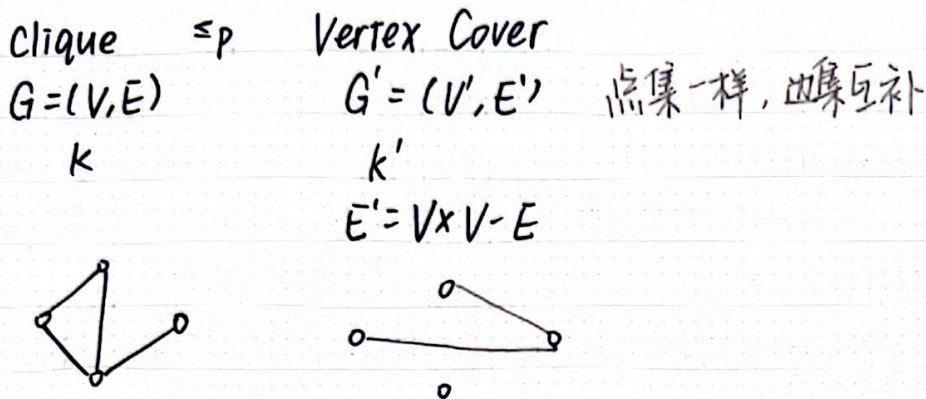 Clique ≤p Vertex Cover
G=(V,E) G'=(V',E') 点集一样,边集互补
K k'
E'=V×V-E